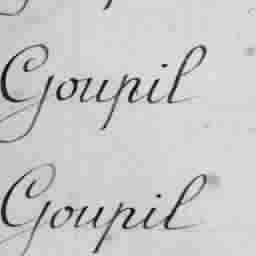 Goupil
Goupil